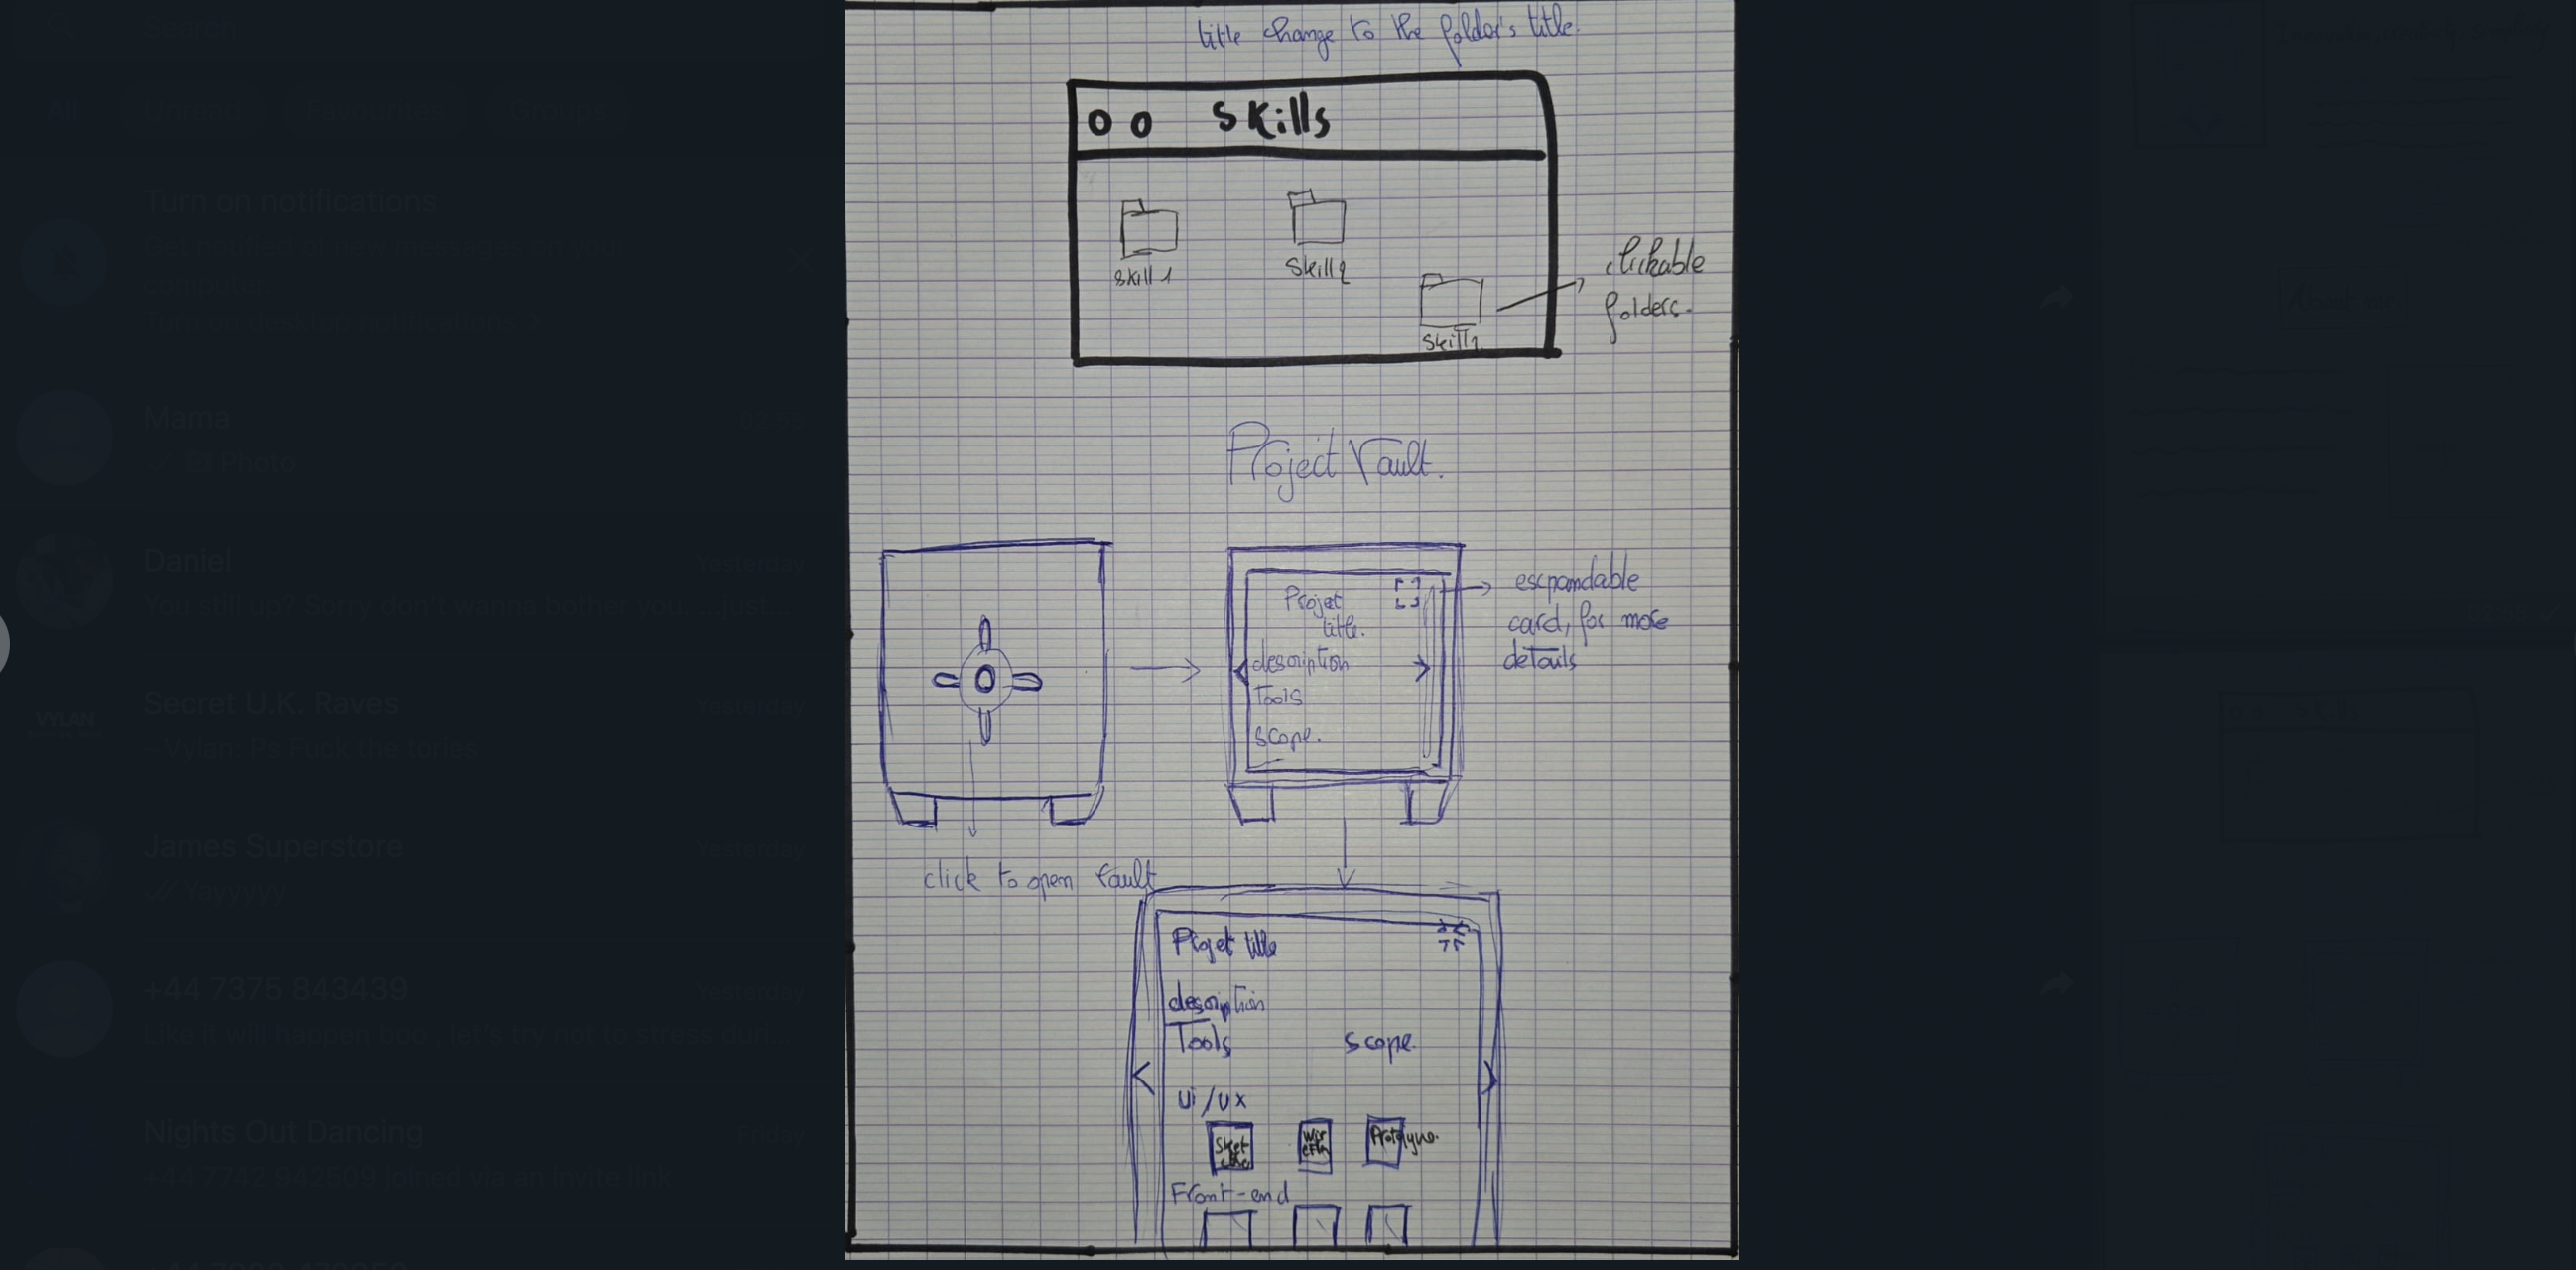 Search
All
Unread
Favourites
Groups
Turn on notifications
Get notified of new messages on your
computer.
Turn on desktop notifications >
Mama
Photo
Daniel
Yesterday
You still up? Sorry don't wanna bother you. Just...
Secret U.K. Raves
Yesterday
~ Vylan: Ps Fuck the tories
VYLAN
James Superstore
Yesterday
Yayyyyy
+44 7375 843439
Yesterday
Like it will happen boo, let's try not to stress duri...
Nights Out Dancing
Friday
+44 7742 942609 joined via an invite link
title change to the folder's title.
Skills
skill 1
Skill 2
clickable
folders.
Project Vault.
Projet
title.
description
Tools
scope.
escpandable
card, for more
details
click to open Vault
Projet title
description
Tools
scope.
Ui/Ux
Prototype.
Front-end